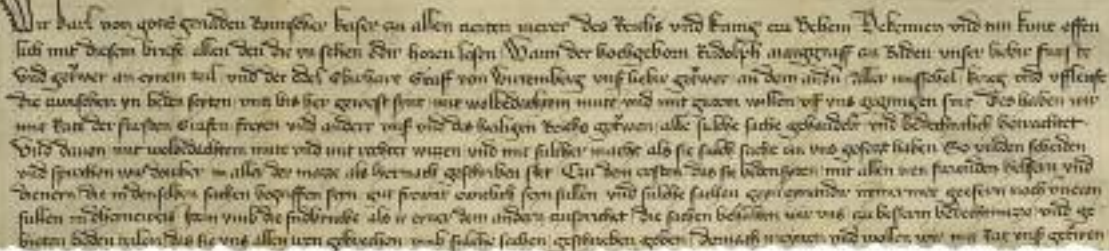 Wir karl von gots gnaden Romischer keiser zu allen zeiten merer des Reichs vnd kunig zu Behem Bekennen vnd tun kunt offen
lich mit diesem briefe allen den die yn sehen oder horen lesen Wann der hochgeborn Rudolph marggraff zu Baden vnser lieber furst
vnd getrwer an einem teil vnd der Edel Eberhart Graff von Wirtemberg vnser lieber getrwer an dem andern aller missehel krieg vnd vfleufe
die zwischen yn beden seyten vntz bis her gewest sint mit wolbedachtem mute vnd mit gutem willen vff vns gegangen sint Des haben wir
mit Rate der fursten Grafen freyen vnd ander vnser vnd des heiligen Reichs getrwen alle sulche sache gehandelt vnd bedechtlich betrachtet
Vnd dauon mit wolbedachtem mute vnd mit rechter wizzen vnd mit sulcher macht als sie sulch sache an vns gesatzt haben So
vnd sprechen wir doruber in aller der mazze als hernach geschriben stet Czu dem ersten das sie bedenseyten mit allen iren frewnden helfern vnd
dienern die in denselben sachen begriffen sein gut frewnt sein sullen vnd sulche sachen gen einander nymer mer noch
sullen in dheineweis vmb die als ir einer dem andern zuspricht die sachen behalten wir vns zu bezzerm vnd ge
bieten beden teilen das sie vns allen iren gebrechen vmb sulche sachen geschriben geben dornach meynen vnd wollen wir mit Rat vnser getrwen